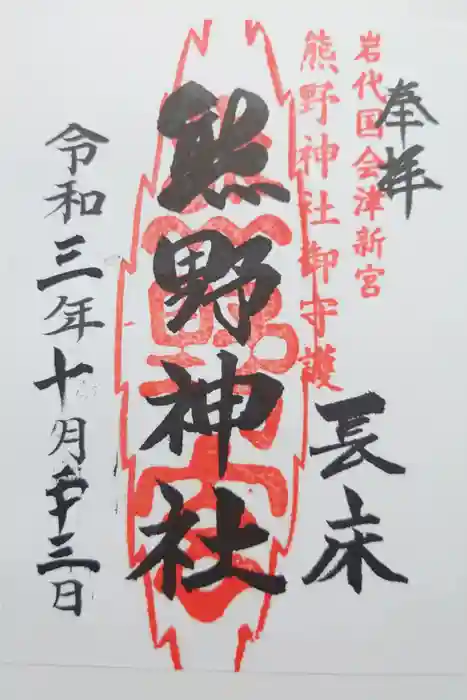 奉拝
岩代国会津新宮
熊野神社御守護
長床
熊野神社
令和三年十月十三日